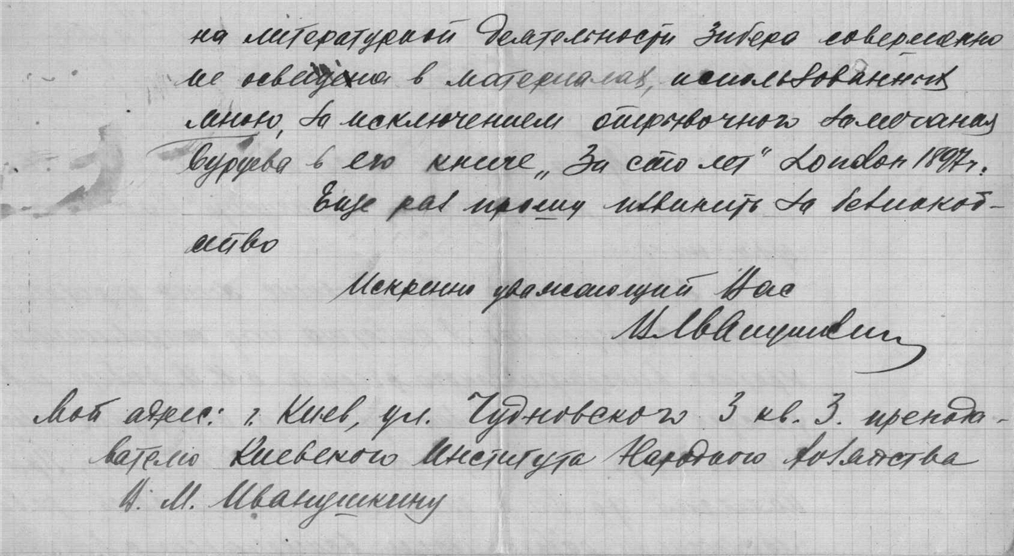 на литературной деятельности Зибера совершенно
не освещена в материалах, использованных
мною, за исключением отрывочного замечания
Бурцева в его книге „За сто лет“ London 1897 г.
Еще раз прошу извинить за беспокой-
ство
Искренно уважающий Вас
В Иванушкин
Мой адрес: г. Киев, ул. Чудновского 3 кв. 3. препода-
вателю Киевского Института Народного Хозяйства
В. М. Иванушкину